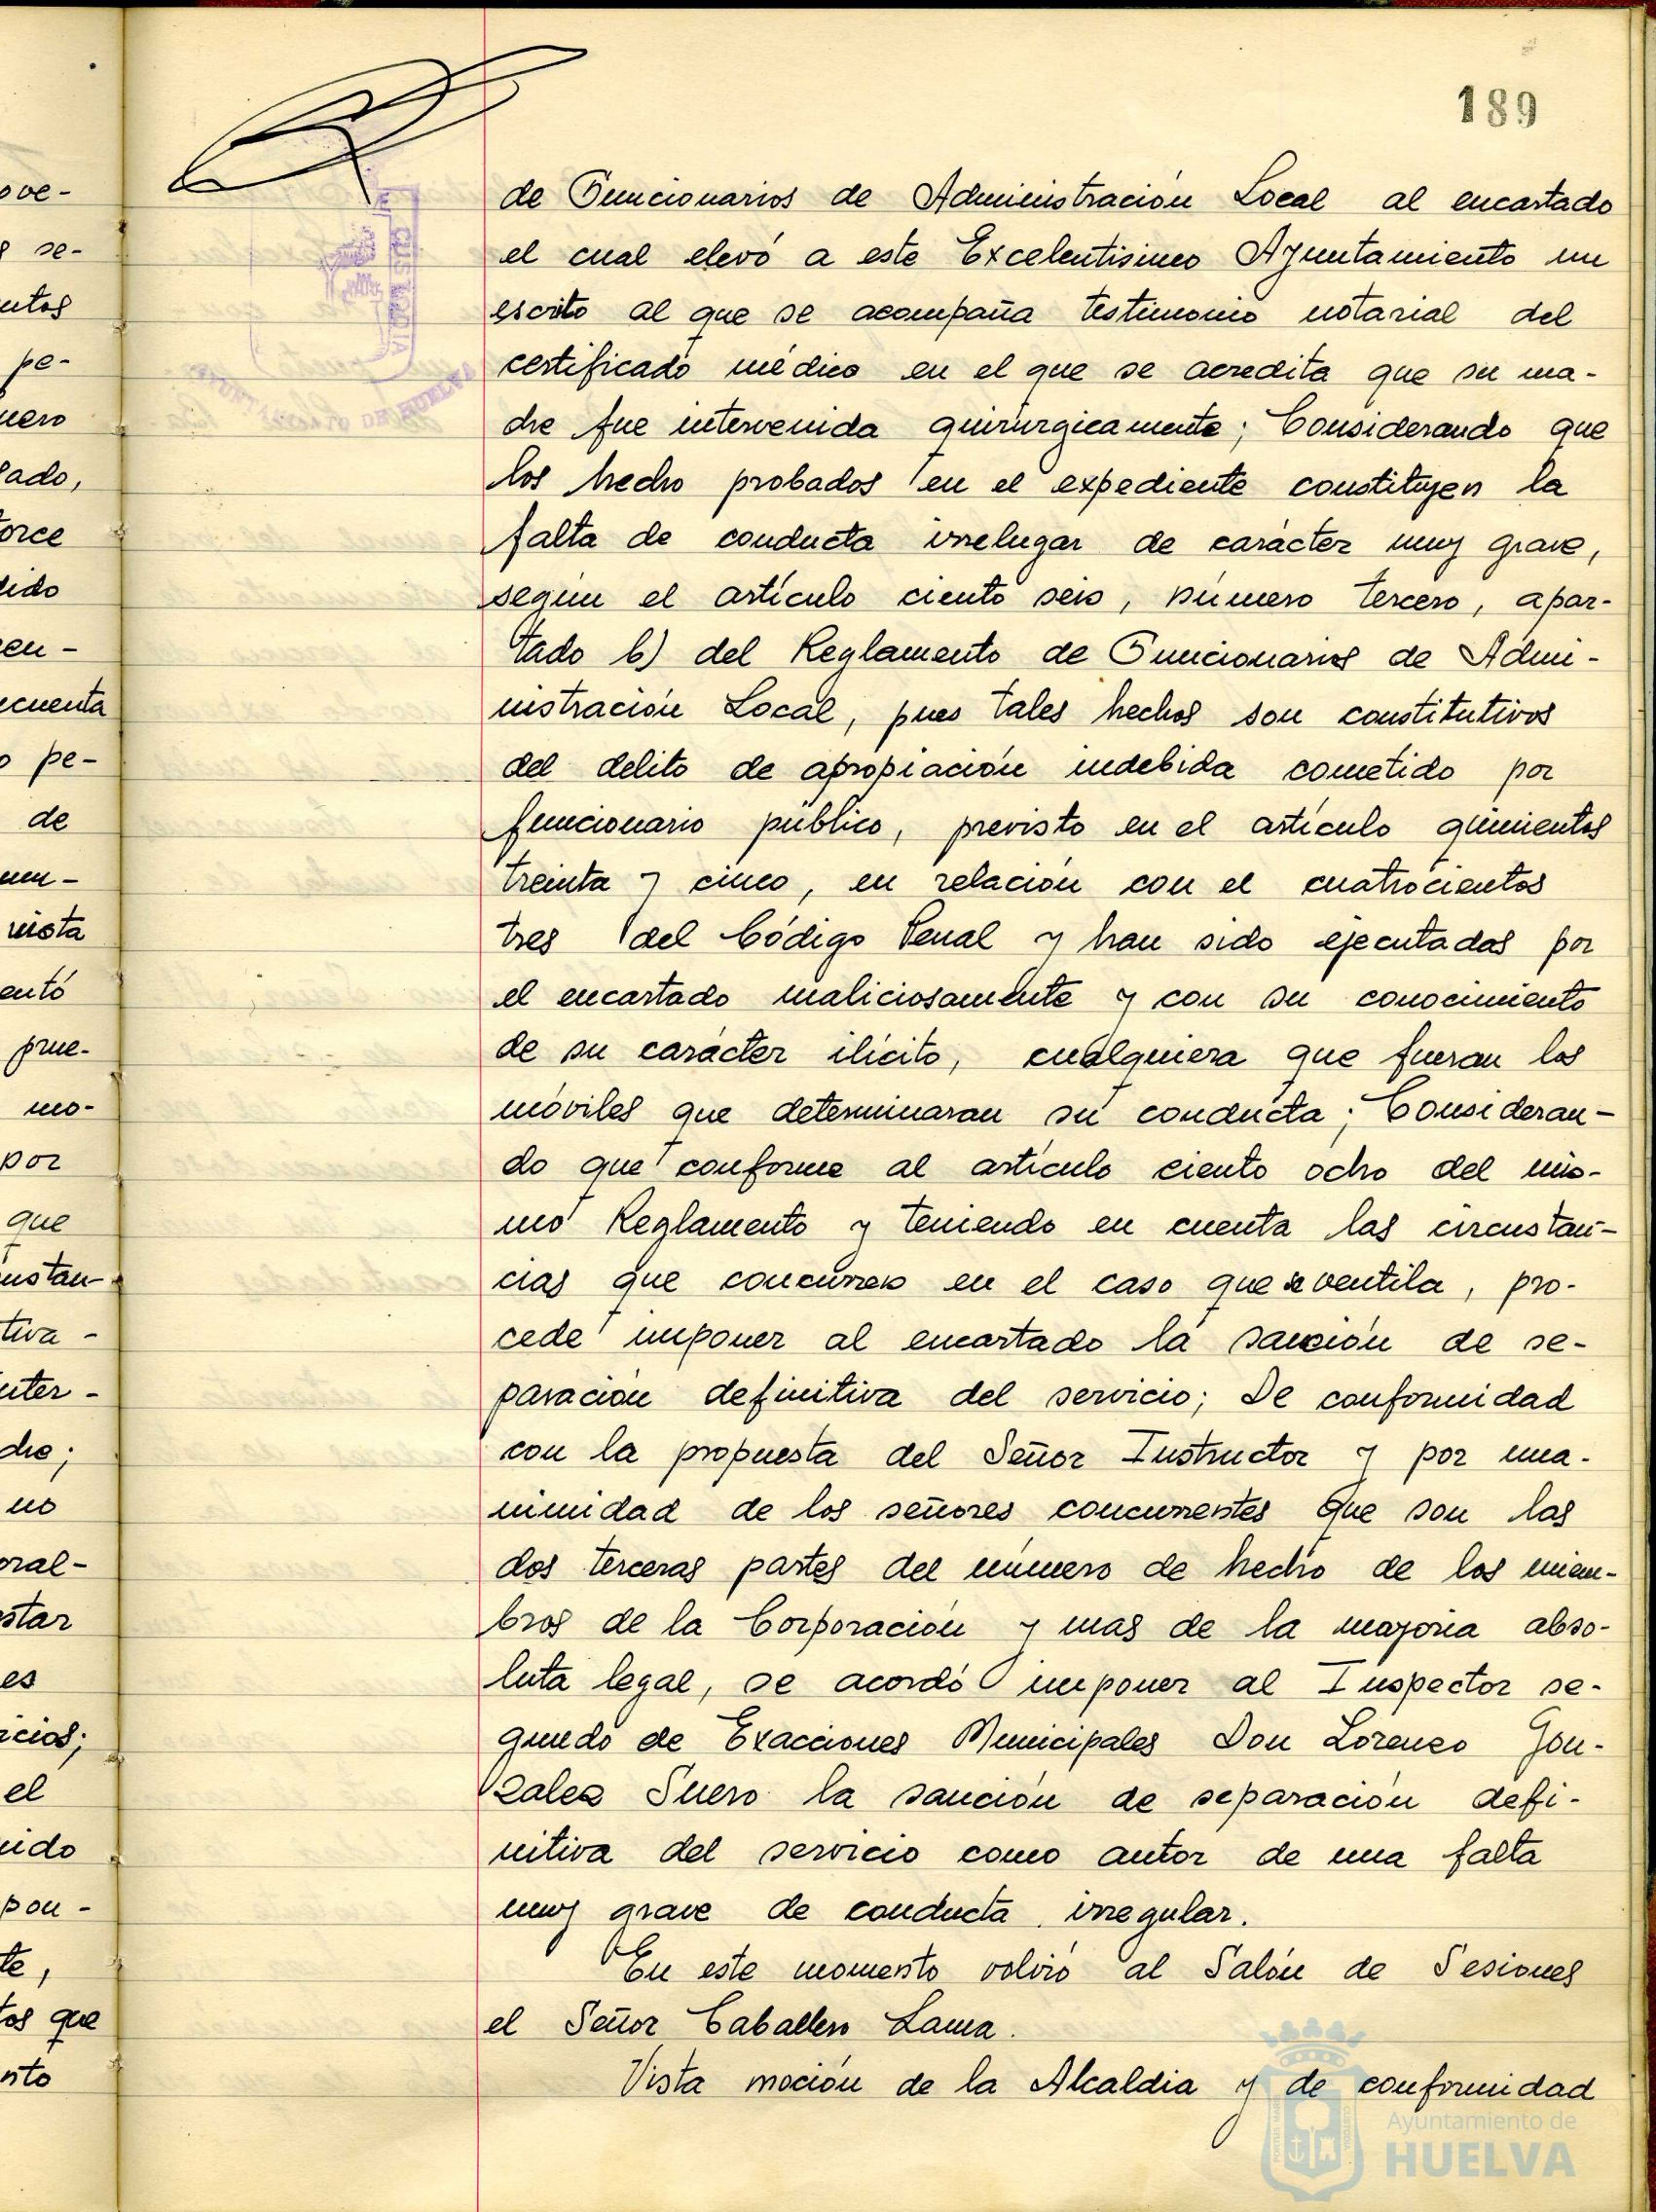 189
de Funcionarios de Administración Local al encartado
el cual elevó a este Excelentisimo Ayuntamiento un
escrito al que se acompaña testimonio notarial del
certificado médico en el que se acredita que su ma-
dre fue intervenida quirúrgicamente; Considerando que
los hecho probados en el expediente constituyen la
falta de conducta irrelugar de carácter muy grave,
según el artículo ciento seis, número tercero, apar-
tado b) del Reglamento de Funcionarios de Admi-
nistración Local, pues tales hechos son constitutivos
del delito de apropiación indebida cometido por
funcionario público, previsto en el artículo quinientos
treinta y cinco, en relación con el cuatrocientos
tres del Código Penal y han sido ejecutadas por
el encartado maliciosamente y con su conocimiento
de su carácter ilícito, cualquiera que fueran los
móviles que determinaran su conducta; Consideran-
do que conforme al artículo ciento ocho del mis-
mo Reglamento y teniendo en cuenta las circustan-
cias que concurren en el caso que se ventila, pro-
cede imponer al encartado la sanción de se-
paración definitiva del servicio; De conformidad
con la propuesta del Señor Instructor y por una-
nimidad de los señores concurrentes que son las
dos terceras partes del número de hecho de los miem-
bros de la Corporación y mas de la mayoria abso-
luta legal, se acordó imponer al Inspector se-
gundo de Exacciones Municipales Don Lorenzo Gon-
zalez Suero la sanción de separación defi-
nitiva del servicio como autor de una falta
muy grave de conducta irregular.
En este momento volvió al Salón de Sesiones
el Señor Caballero Lama.
Vista moción de la Alcaldia y de conformidad
ove-
se-
pe-
ado,
orce
dido
en-
cuenta
pe-
de
vista
entó
prue-
mo-
por
que
ustan-
tiva-
nter-
dre;
no
oral-
star
es
icios;
el
uido
pon-
te,
os que
nto
CUSTODIA
AYUNTAMIENTO DE HUELVA
Ayuntamiento de
HUELVA